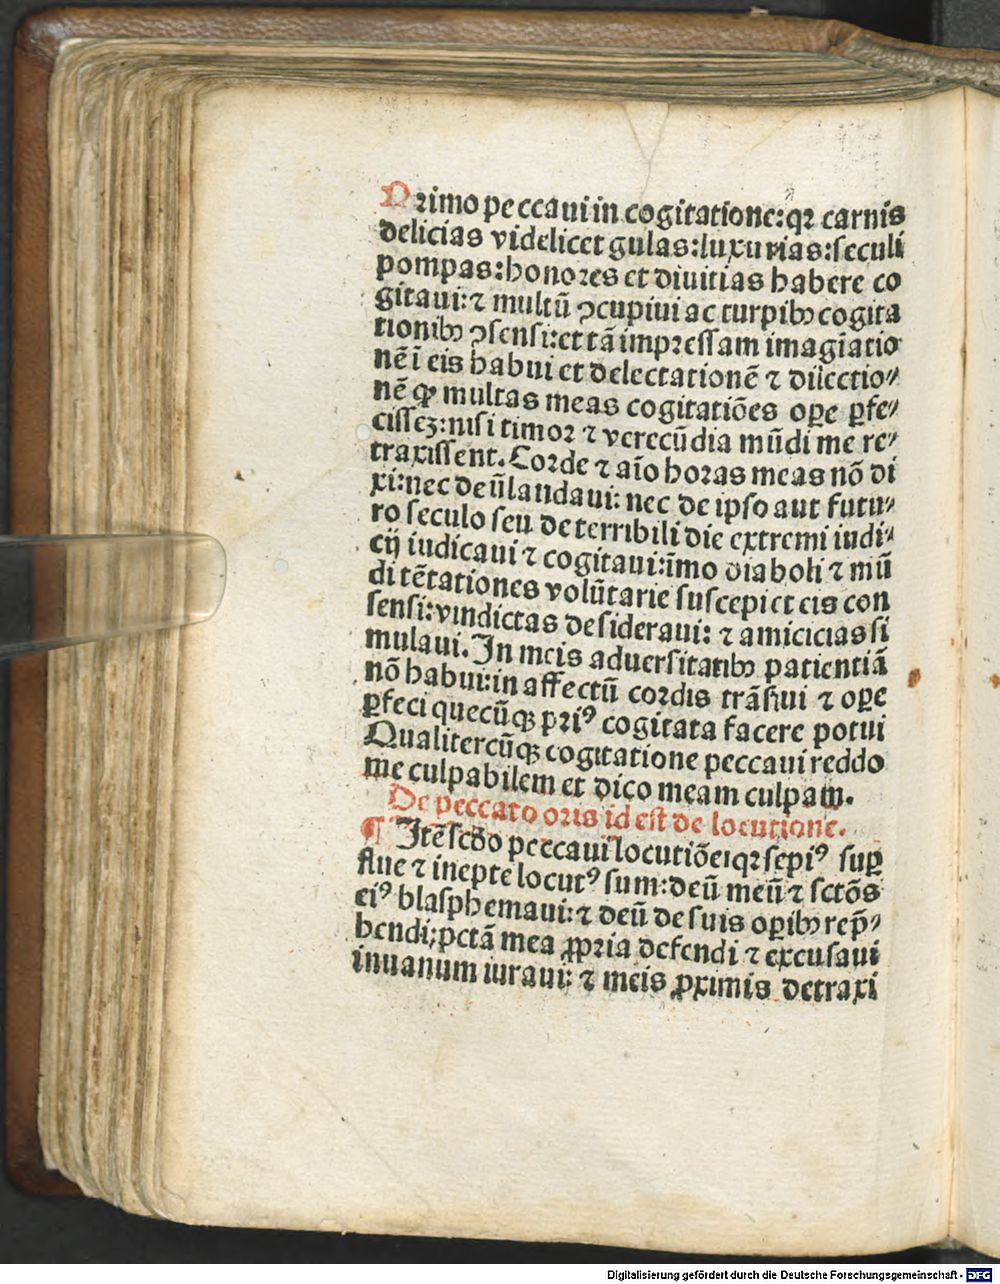 Primo peccaui in cogitatione: qꝛ carnis
delicias videlicet gulas: luxurias: seculi
pompas: honoꝛes et diuitias habere co
gitaui: ⁊ multū ꝯcupiui ac turpibꝫ cogita
tionibꝫ ꝯsensi: et tā impꝛessam imagīatio
nē ī eis habui et delectationē ⁊ dilectio⸗
nē ꝙ multas meas cogitatiōes oꝑe ꝑfe⸗
cissez: nisi timoꝛ ⁊ verecūdia mūdi me re⸗
traxissent. Coꝛde ⁊ aīo hoꝛas meas nō di
xi: nec deū laudaui: nec de ipso aut futu⸗
ro seculo seu de terribili die extremi iudi⸗
cij iudicaui ⁊ cogitaui: īmo diaboli ⁊ mū
di tētationes volūtarie suscepi et eis con
sensi: vindictas desideraui: ⁊ amicicias si
mulaui. In meis aduersitatibꝫ patientiā
nō habui: in affectū coꝛdis trāsiui ⁊ oꝑe
ꝑfeci quecūqꝫ pꝛiꝰ cogitata facere potui
Qualitercūqꝫ cogitatione peccaui reddo
me culpabilem et dico meam culpam.
De peccato oꝛis id est de locutione.
¶ Itē scdo peccaui ī locutiōe: qꝛ sepiꝰ suꝑ
flue ⁊ inepte locutꝰ sum: deū meū ⁊ sctōs
eiꝰ blasphemaui: ⁊ deū de suis oꝑibꝫ rep̄⸗
hendi; pctā mea ꝓpria defendi ⁊ excusaui
inuanum iuraui: ⁊ meis ꝓximis detraxi
Digitalisierung gefördert durch die Deutsche Forschungsgemeinschaft - DFG